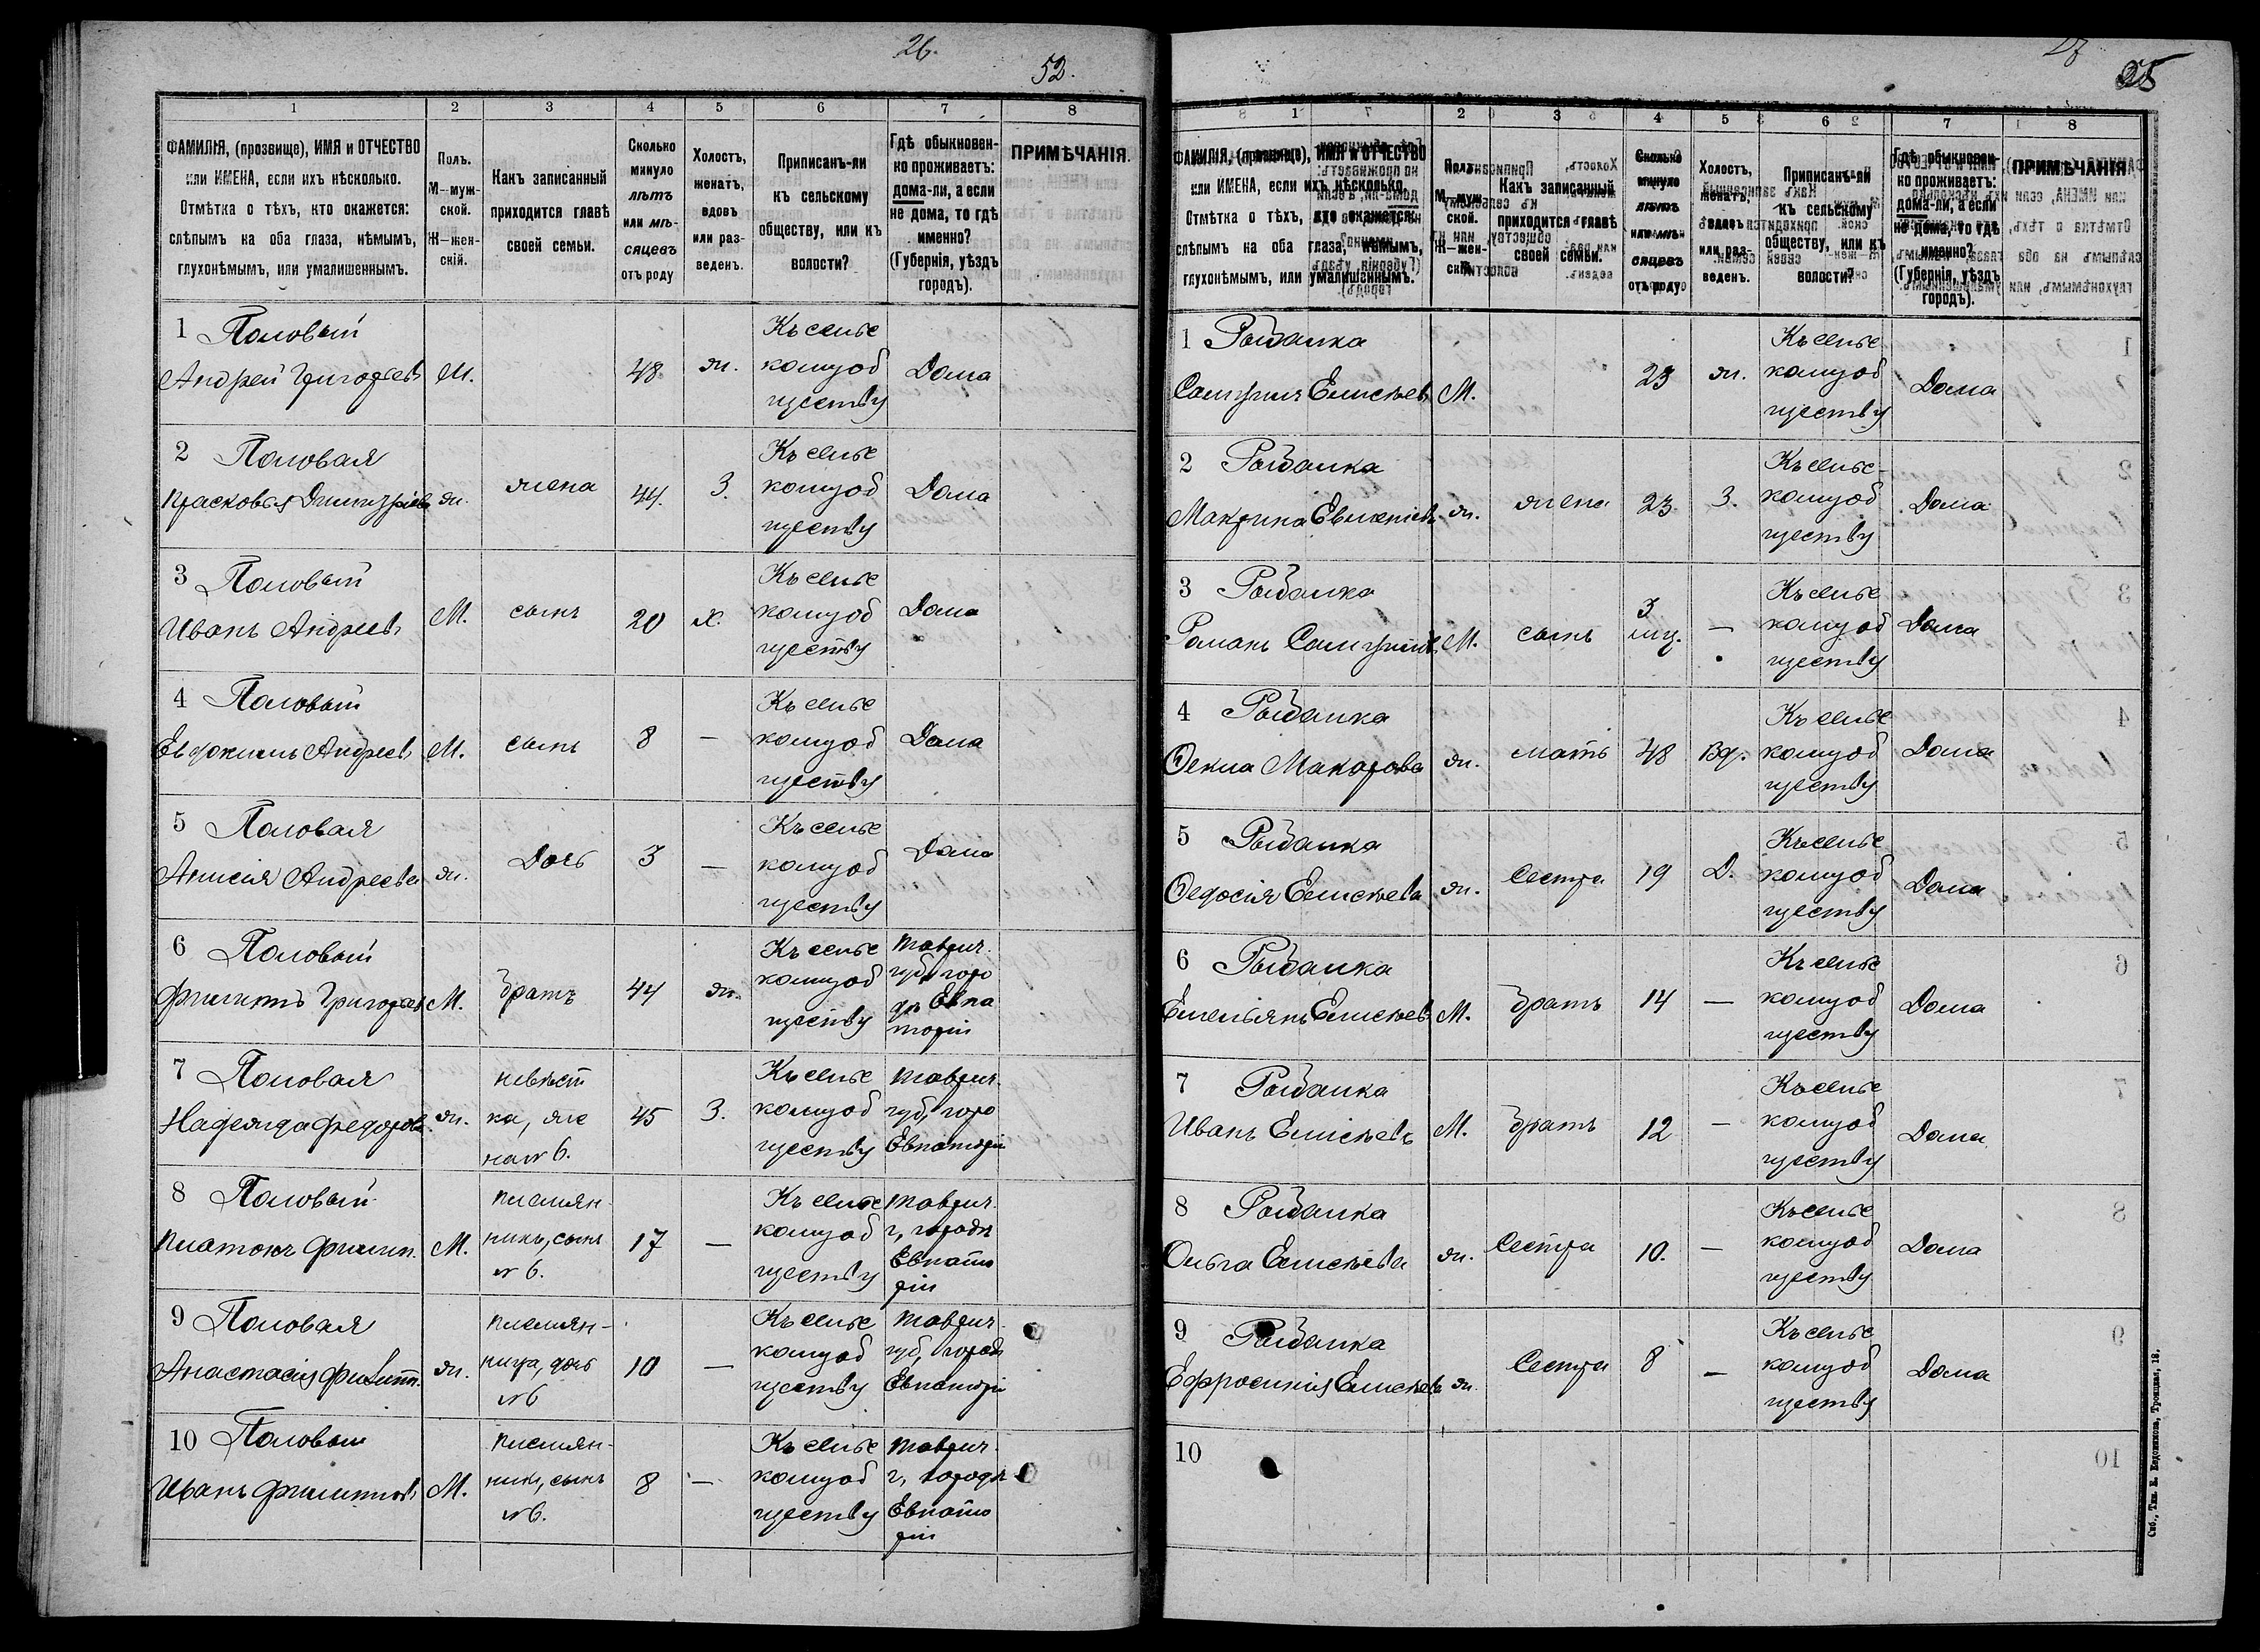 26.
52.
1 2 3 4 5 6 7 8
ФАМИЛІЯ, (прозвище), ИМЯ и ОТЧЕСТВО
или ИМЕНА, если ихъ нѣсколько.
Отмѣтка о тѣхъ, кто окажется:
слѣпымъ на оба глаза, нѣмымъ,
глухонѣмымъ, или умалишеннымъ.
Полъ.
М—муж-
ской.
Ж—жен-
скій.
Какъ записанный
приходится главѣ
своей семьи.
Сколько
минуло
лѣтъ
или мѣ-
сяцевъ
отъ роду
Холостъ,
женатъ,
вдовъ
или раз-
веденъ.
Приписанъ-ли
къ сельскому
обществу, или къ
волости?
Гдѣ обыкновен-
но проживаетъ:
дома-ли, а если
не дома, то гдѣ
именно?
(Губернія, уѣздъ
городъ).
ПРИМѢЧАНІЯ.
1 Половый
Андрей Григорьевъ
М.
48
ж.
Къ сельс
кому об
ществу
Дома
2 Половая
Прасковья Дмитріев
ж.
жена
44.
З.
Къ сельс
кому об
ществу
Дома
3 Половый
Иванъ Андреевъ
М.
сынъ
20
х.
Къ сельс
кому об
ществу
Дома
4 Половый
Евдокимъ Андреевъ
М.
сынъ
8
—
Къ сельс
кому об
ществу
Дома
5 Половая
Анисія Андреева
ж.
Дочь
3
—
Къ сельс
кому об
ществу
Дома
6 Половый
Филиппъ Григорьев
М.
братъ
44
ж.
Къ сельс
кому об
ществу
Таврич.
губ, горо
дъ Евпа
торіи
7 Половая
Надежда Федорова
ж.
невѣст
ка, же
на № 6.
45
З.
Къ сельс
кому об
ществу
Таврич.
губ, горо
Евпаторіи
8 Половый
Платонъ Филип.
М.
племян-
никъ, сынъ
№ 6.
17
—
Къ сельс
кому об
ществу
Таврич.
г, городъ
Евпато
ріи
9 Половая
Анастасія Филипп.
ж.
племян-
ница, дочь
№ 6
10
—
Къ сельс
кому об
ществу
Таврич.
губ, городъ
Евпаторіи
10 Половый
Иванъ Филипповъ
М.
племян-
никъ, сынъ
№ 6.
8
—
Къ сельс
кому об
ществу
Таврич.
г, городъ
Евпато
ріи
27
1 2 3 4 5 6 7 8
ФАМИЛІЯ, (прозвище), ИМЯ и ОТЧЕСТВО
или ИМЕНА, если ихъ нѣсколько.
Отмѣтка о тѣхъ, кто окажется:
слѣпымъ на оба глаза, нѣмымъ,
глухонѣмымъ, или умалишеннымъ.
Полъ.
М—муж-
ской.
Ж—жен-
скій.
Какъ записанный
приходится главѣ
своей семьи.
Сколько
минуло
лѣтъ
или мѣ-
сяцевъ
отъ роду
Холостъ,
женатъ,
вдовъ
или раз-
веденъ.
Приписанъ-ли
къ сельскому
обществу, или къ
волости?
Гдѣ обыкновен-
но проживаетъ:
дома-ли, а если
не дома, то гдѣ
именно?
(Губернія, уѣздъ
городъ).
ПРИМѢЧАНІЯ.
1 Рыбалка
Самуилъ Елисѣевъ
М.
23
ж.
Къ сельс
кому об
ществу
Дома
2 Рыбалка
Макрина
ж.
жена
23
З.
Къ сельс-
кому об
ществу
Дома
3 Рыбалка
Романъ Самуилов.
М.
сынъ
3
мц.
—
Къ сельс
кому об
ществу
Дома
4 Рыбалка
Ѳекла Макарова
ж.
мать
48
Вд.
Къ сельс
кому об
ществу
Дома
5 Рыбалка
Ѳедосія Елисѣева
ж.
Сестра
19
Д.
Къ сельс
кому об
ществу
Дома
6 Рыбалка
Емельянъ Елисѣев
М.
братъ
14
—
Къ сельс
кому об
ществу
Дома
7 Рыбалка
Иванъ Елисѣевъ
М.
братъ
12
—
Къ сельс
кому об
ществу
Дома
8 Рыбалка
Ольга Елисѣева
ж.
Сестра
10.
—
Къ сельс
кому об
ществу
Дома
9 Рыбалка
Ефросинія Елисѣева
ж.
Сестра
8
—
Къ сельс
кому об
ществу
Дома
10
Спб., Тип. Е. Евдокимова, Троицкая, 18.